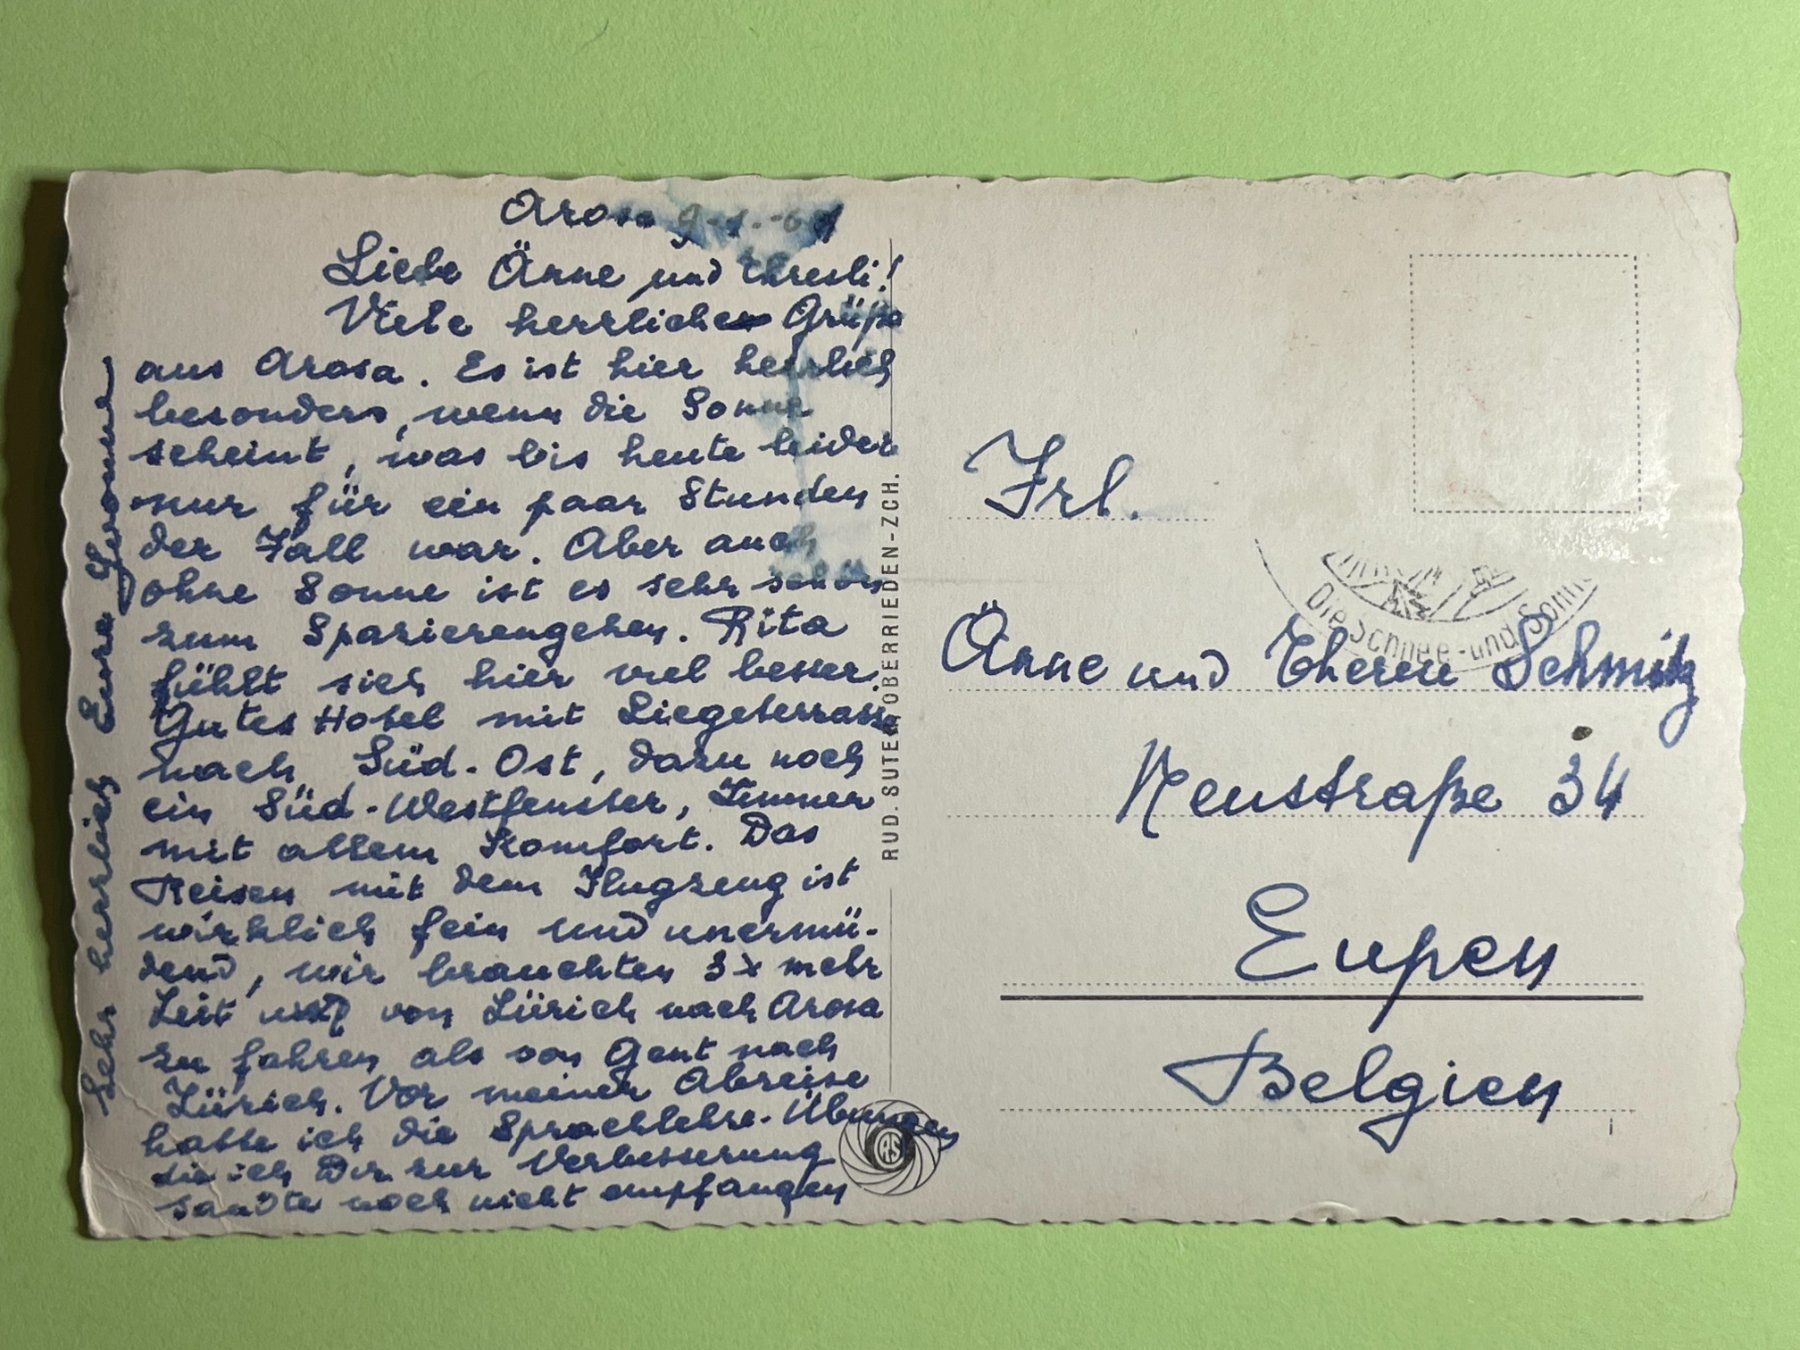 Arosa 9-1.-61
Liebe Änne und Thresli!
Viele herrliche Grüße
aus Arosa. Es ist hier herrlich
besonders, wenn die Sonne
scheint, was bis heute leider
nur für ein paar Stunden
der Fall war. Aber auch
ohne Sonne ist es sehr schön
zum Spazierengehen. Rita
fühlt sich hier viel besser.
Gutes Hotel mit Liegeterrasse
nach Süd-Ost, dazu noch
ein Süd-Westfenster, Zimmer
mit allem Komfort. Das
Reisen mit dem Flugzeug ist
wirklich fein und unermü-
dend, wir brauchten 3x mehr
Zeit von Zürich nach Arosa
zu fahren als von Gent nach
Zürich. Vor meiner Abreise
hatte ich die Sprachlehre-Übungen
die ich Dir zur Verbesserung
sandte noch nicht empfangen
Sehr herrlich Eure Yvonne
RUD. SUTER, OBERRIEDEN-ZCH.
RS
Die Schnee-und Sonn
Frl.
Änne und Therese Schmitz
Neustraße 34
Eupen
Belgien